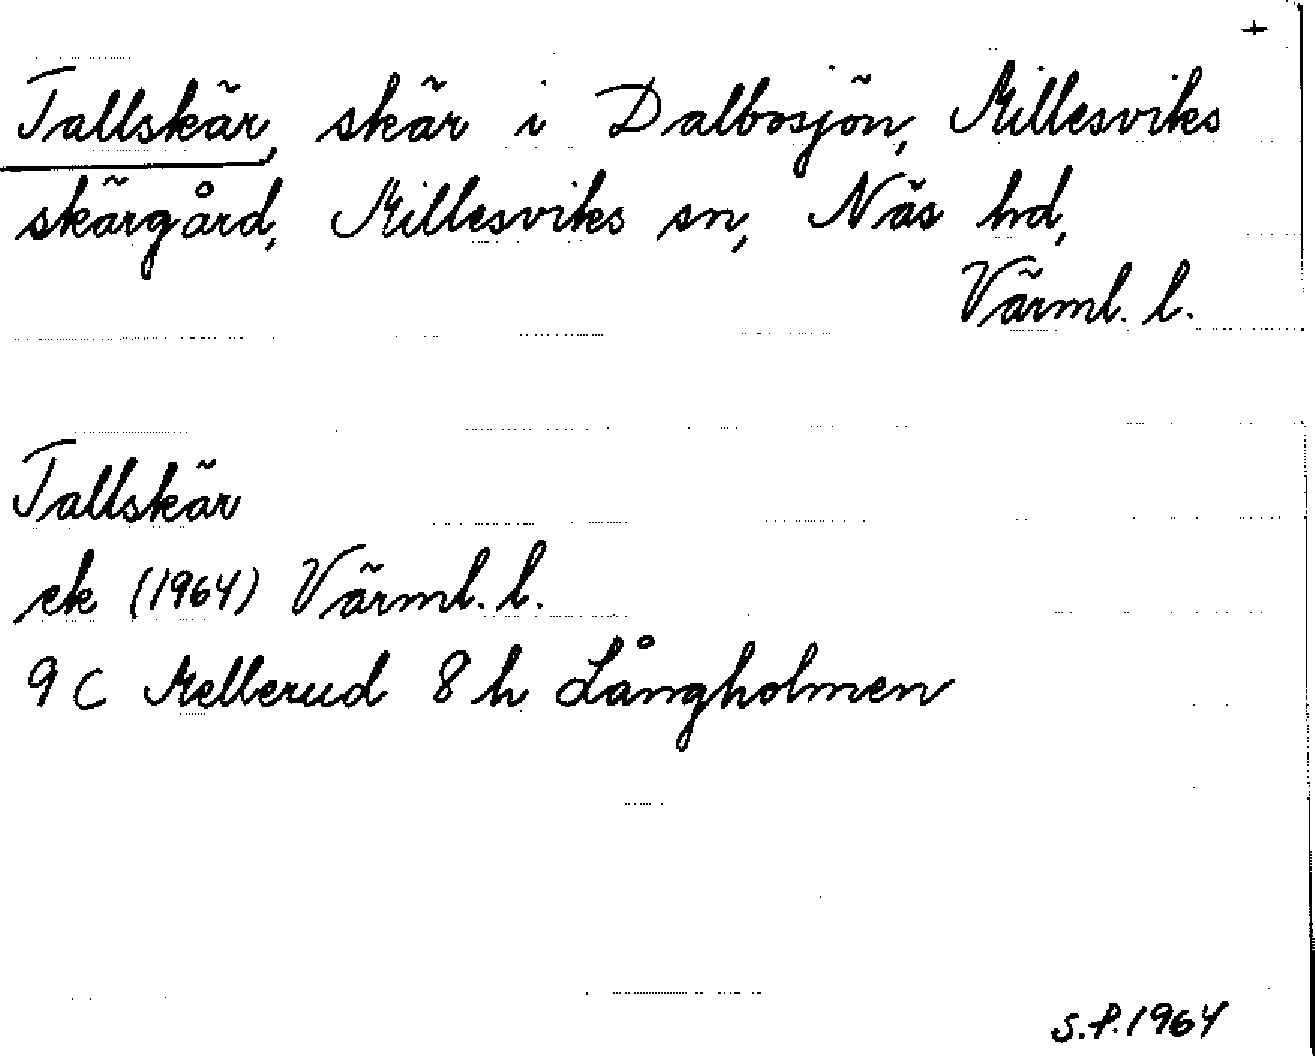 +
Tallskär, skär i Dalbosjön, Millesviks
skärgård, Millesviks sn, Näs hd,
Värml. l.
Tallskär
ek (1964) Värml. l.
9 C Mellerud 8 h Långholmen
S.P. 1964